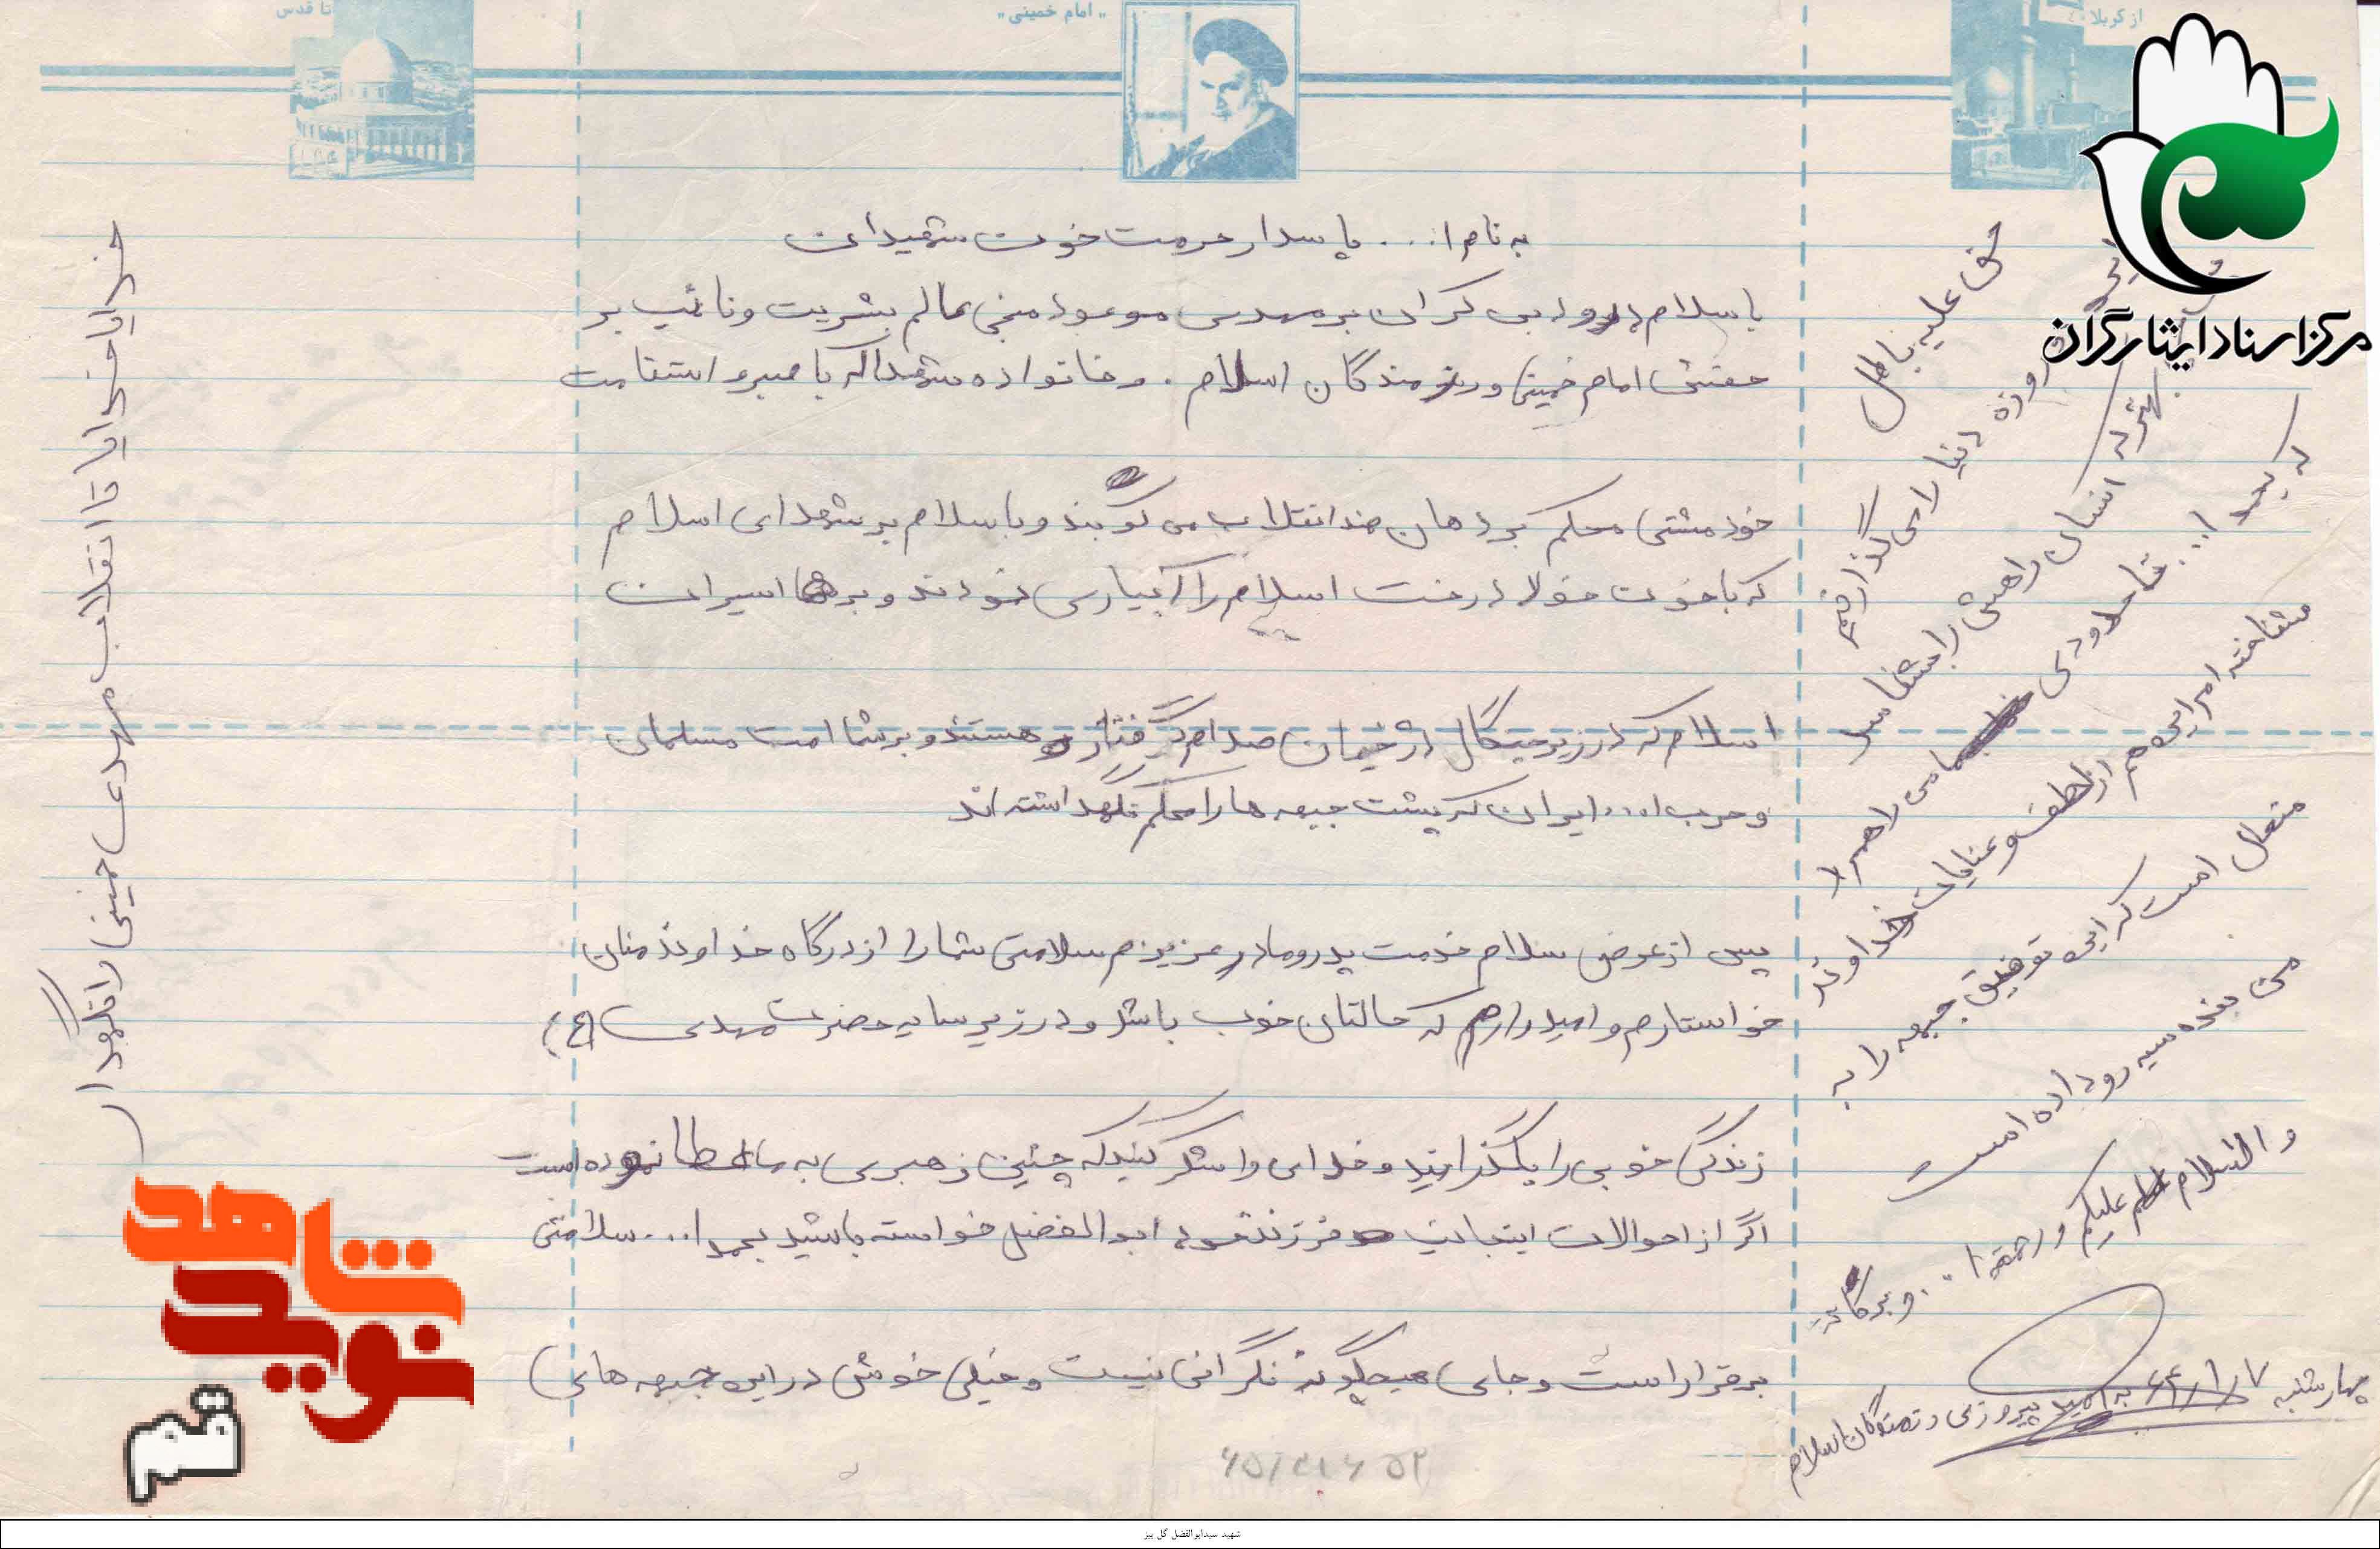 از کربلا
"امام خمینی"
تا قدس
به نام ا... پاسدار حرمت خون شهیدان
با سلام و درود بی کران بر مهدی موعود منجی عالم بشریت و نائب بر
حقش امام خمینی و رزمندگان اسلام . و خانواده شهدا که با صبر و استقامت
خود مشتی محکم بر دهان ضد انقلاب می کوبند و با سلام بر شهدای اسلام
که با خون خود درخت اسلام را آبیاری نمودند و بر اسیران
اسلام که در زیر چنگال دژخیمان صدام گرفتار هستند و بر شما امت مسلمان
و حزب ا... ایران که پشت جبهه ها را محکم نگهداشته اند
پس از عرض سلام خدمت پدر و مادر عزیزم سلامتی شما را از درگاه خداوند منان
خواستارم و امیدوارم که حالتان خوب باشد و در زیر سایه حضرت مهدی (ع)
زندگی خوبی را بگذرانید و خدای را شکر کنید که چنین رهبری به ما عطا نموده است
اگر از احوالات اینجانب فرزند خود ابوالفضل خواسته باشید بحمدا... سلامتی
برقرار است و جای هیچگونه نگرانی نیست و خیلی خوش در این جبهه های
حق علیه باطل
روزه دنیا را می گذرانیم
بهتر که انسان راهش را بشناسد
که بحمدا... تا حدودی راهم را
شناخته ام این هم از لطف و عنایات خداوند
متعال است که این توفیق جبهه را به
من بنده سیه رو داده است
والسلام علیکم و رحمة ا... و برکاته
چهارشنبه ۶۴/۱/۷
به امید پیروزی رزمندگان اسلام
خدایا خدایا تا انقلاب مهدی خمینی را نگهدار
مرکز اسناد ایثارگران
نوید شاهد
قم
شهید سیدابوالفضل گل بیز